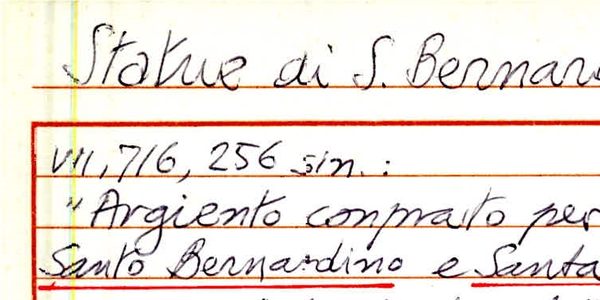 Statue di S. Bernar
VII, 716, 256 sin.:
"Argiento conprato per
Santo Bernardino e Santa